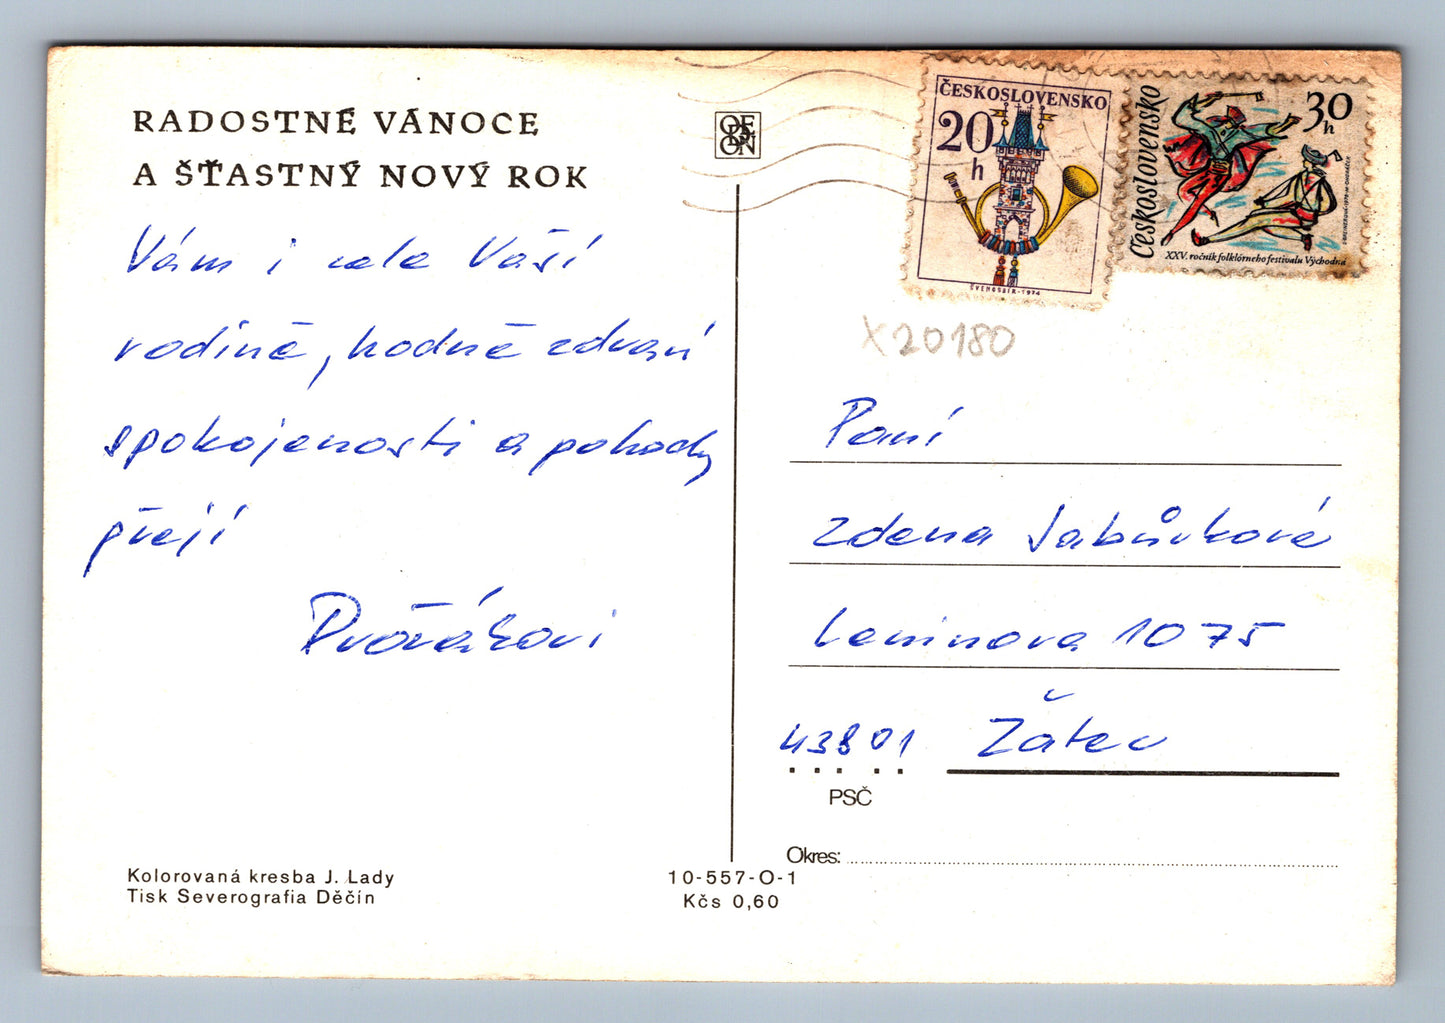 RADOSTNÉ VÁNOCE
A ŠŤASTNÝ NOVÝ ROK
Vám i celé Vaší
rodině, hodně zdraví
spokojenosti a pohody
přejí
Dvořákovi
ČESKOSLOVENSKO
20
h
ŠVENGSBÍR-1974
Československo
30
h
XXV. ročník folklórneho festivalu Východná
X20180
Paní
Zdena Jabůvková
Leninova 1075
43801 Žatec
PSČ
Okres:
Kolorovaná kresba J. Lady
Tisk Severografia Děčín
10-557-O-1
Kčs 0,60